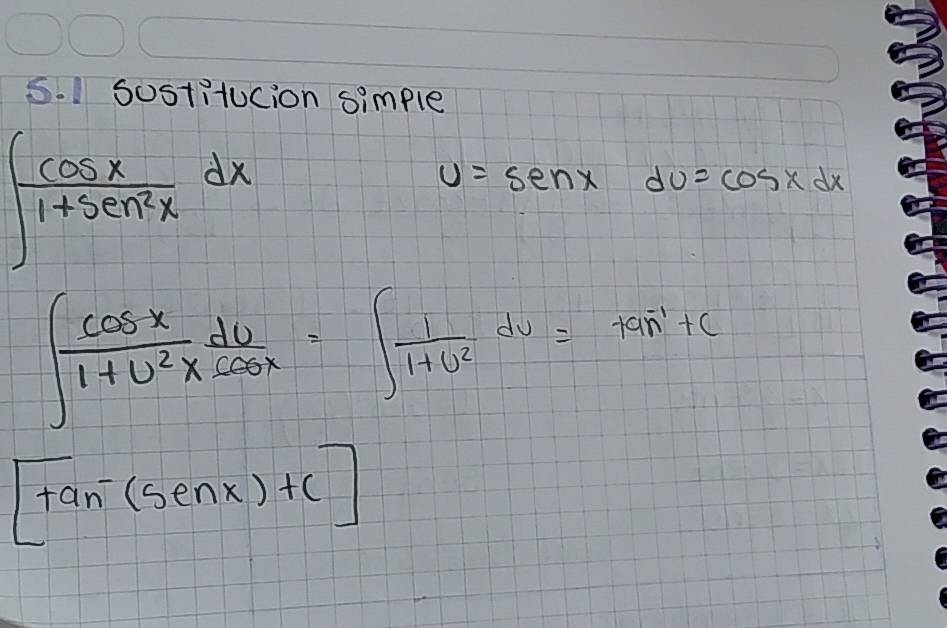 5.1 Sustitucion simple
∫ cosx / 1+sen²x dx u = senx du = cosx dx
∫ cosx / 1+u²x du / cosx = ∫ 1 / 1+u² du = tan⁻¹ + C
[tan⁻ (senx) + C]